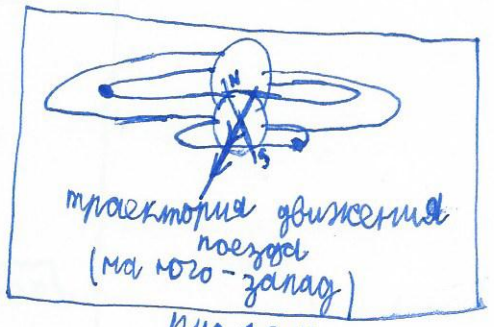 N
S
траектория движения
поезда
(на юго-запад)